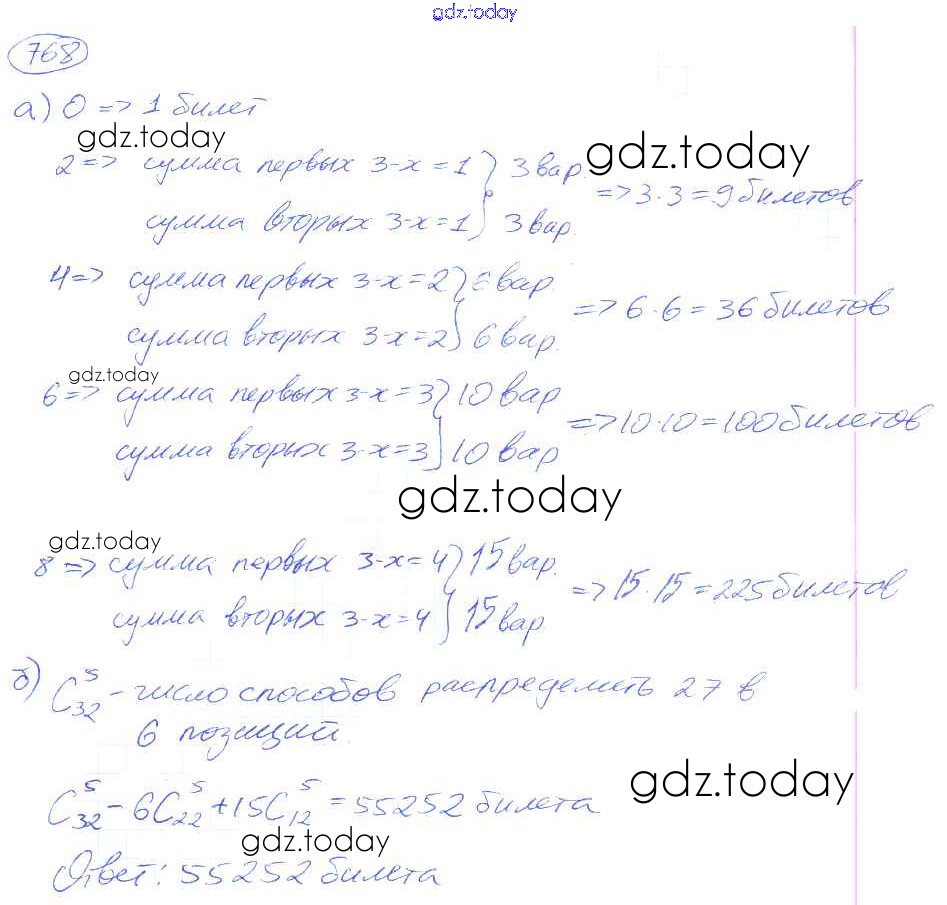 gdz.today
768
а) 0 => 1 билет
gdz.today
gdz.today
2 => сумма первых 3-х = 1 } 3 вар.
сумма вторых 3-х = 1 } 3 вар.
=> 3·3 = 9 билетов
4 => сумма первых 3-х = 2 } 6 вар.
сумма вторых 3-х = 2 } 6 вар.
=> 6·6 = 36 билетов
gdz.today
6 => сумма первых 3-х = 3 } 10 вар
сумма вторых 3-х = 3 } 10 вар
=> 10·10 = 100 билетов
gdz.today
gdz.today
8 => сумма первых 3-х = 4 } 15 вар.
сумма вторых 3-х = 4 } 15 вар
=> 15·15 = 225 билетов
б) C₃₂⁵ - число способов распределить 27 в
6 позиций.
gdz.today
C₃₂⁵ - 6C₂₂⁵ + 15C₁₂⁵ = 55252 билета
gdz.today
Ответ: 55252 билета